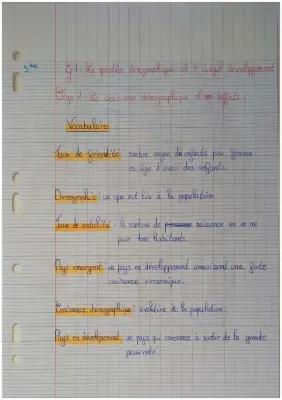 5ème
G1 : La question démographique et l'inégal développement
Chap 1 : La croissance démographique et ses effets :
Vocabulaire
Taux de fécondité : nombre moyen de enfants par femme
en âge d'avoir des enfants.
Démographie : ce que est lié à la population
Taux de natalité : le nombre de naissance en un an
pour 1000 habitants.
Pays émergent : un pays en développement connaissant une forte
croissance économique.
Croissance démographique : évolution de la population.
Pays en développement : un pays qui commence à sortir de la grande
pauvreté.